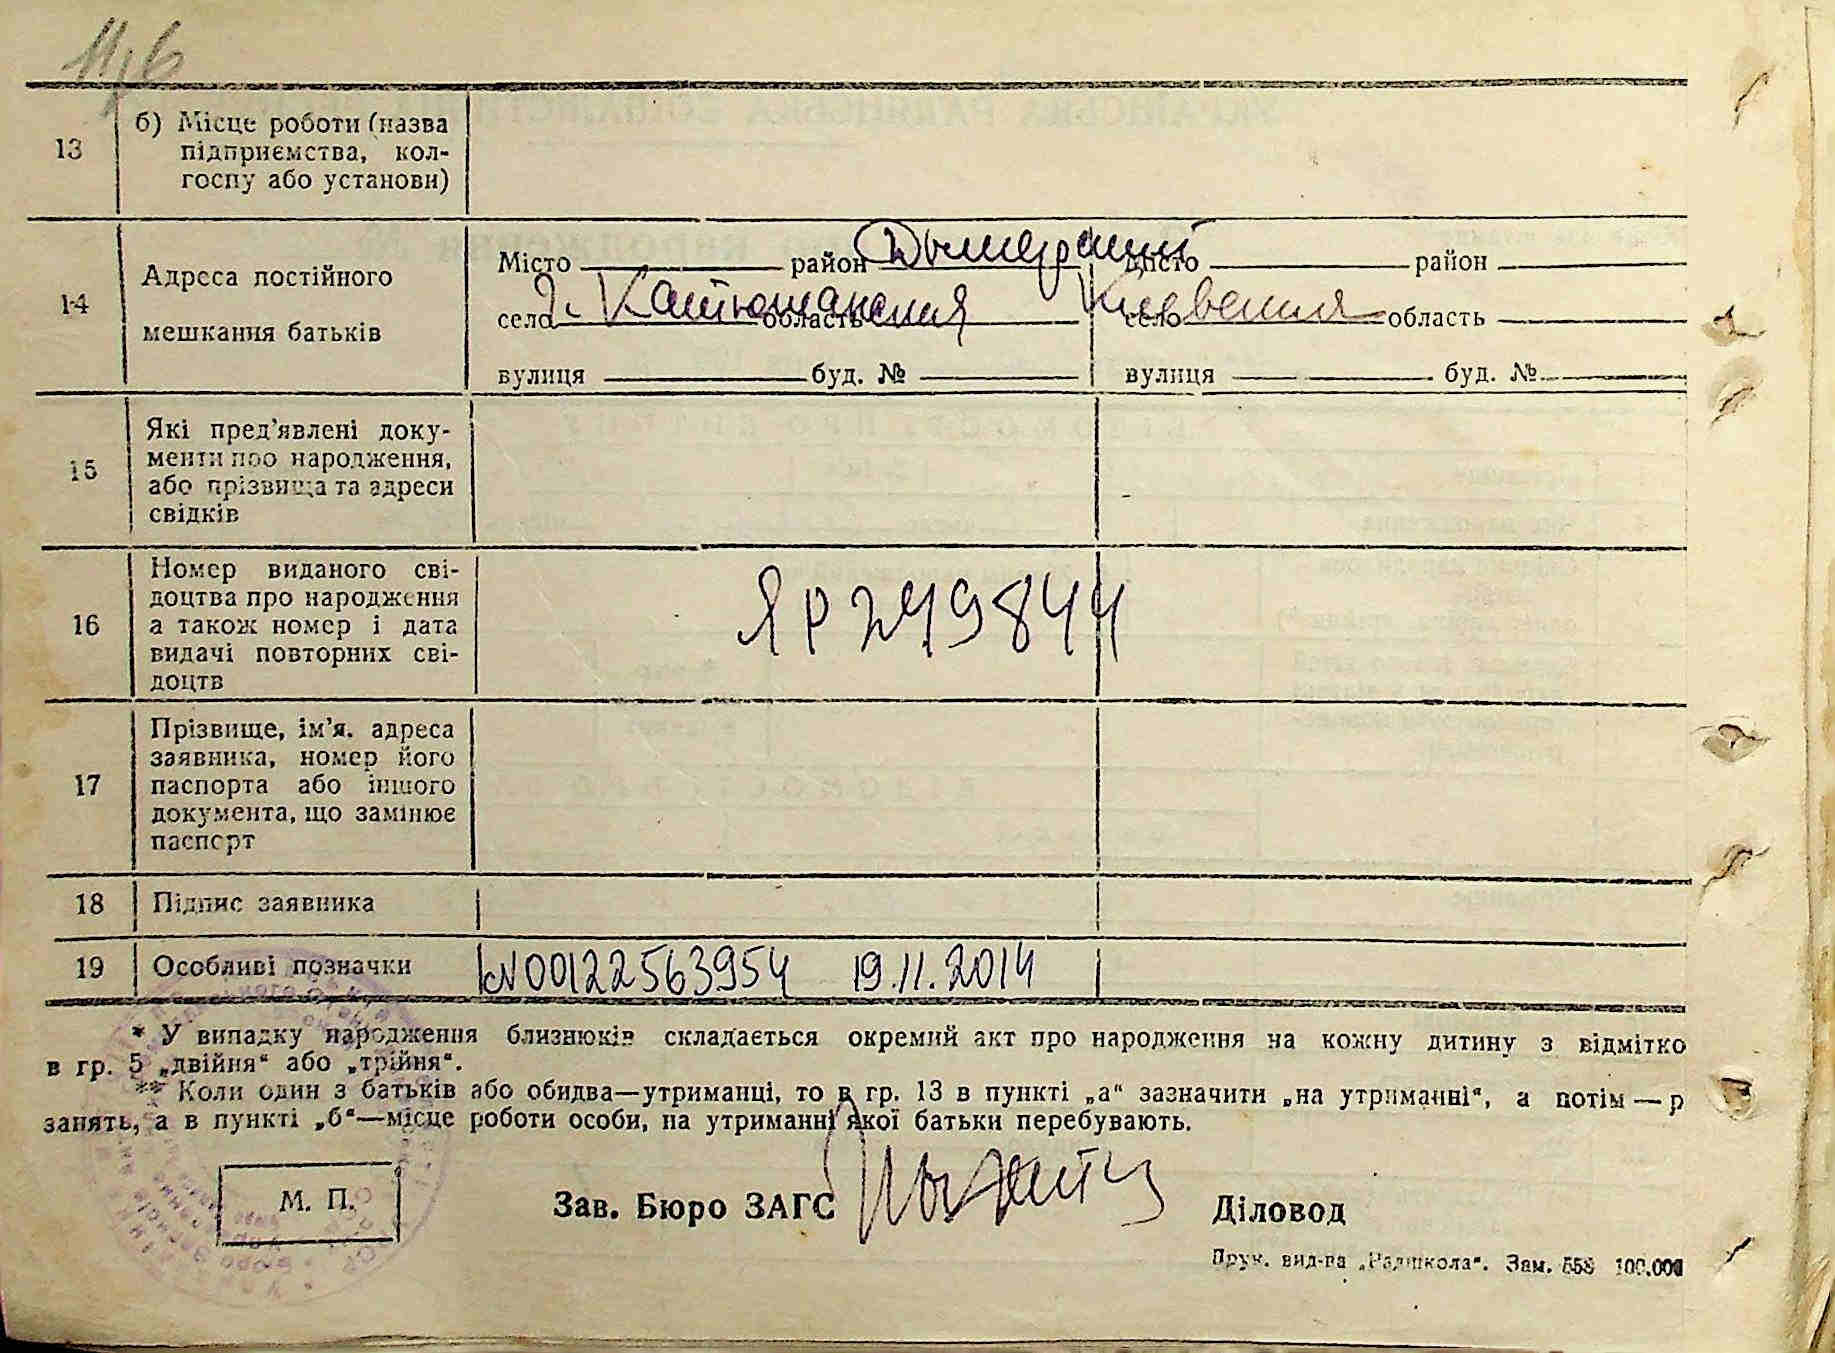 11,6
13
б) Місце роботи (назва
підприємства, кол-
госпу або установи)
14
Адреса постійного
мешкання батьків
Місто район Дымерский
село г. Катюжанская область
вулиця буд. №
Місто район
село Киевская область
вулиця буд. №
15
Які пред’явлені доку-
менти про народження,
або прізвища та адреси
свідків
16
Номер виданого сві-
доцтва про народження
а також номер і дата
видачі повторних сві-
доцтв
ЯР 249844
17
Прізвище, ім’я. адреса
заявника, номер його
паспорта або іншого
документа, що замінює
паспорт
18
Підпис заявника
19
Особливі позначки
N00122563954 19.11.2014
* У випадку народження близнюків складається окремий акт про народження на кожну дитину з відмітко
в гр. 5 „двійня“ або „трійня“.
** Коли один з батьків або обидва—утриманці, то в гр. 13 в пункті „а“ зазначити „на утриманні“, а потім — р
занять, а в пункті „б“—місце роботи особи, на утриманні якої батьки перебувають.
М. П.
Зав. Бюро ЗАГС
Діловод
Друк. вид-ва „Радшкола“. Зам. 558 100.000